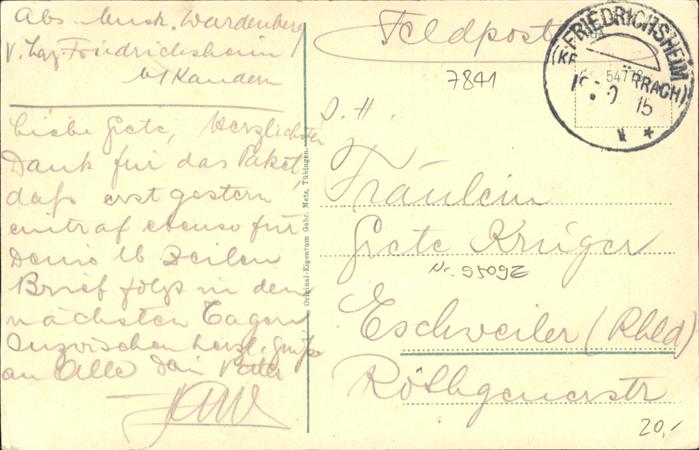 Abs. Musk. Wardenberg
V. Laz. Friedrichsheim
b/ Kandern
Liebe Grete, Herzlichsten
Dank für das Paket,
daß erst gestern
eintraf ebenso für
Deine lb Zeilen
Brief folgt in den
nächsten Tagen
Inzwischen herzl. Grüße
an Alle Dein
Original-Eigentum Gebr. Metz, Tübingen.
Feldpost
FRIEDRICHSHEIM
15
7841
S. H.
Fräulein
Grete Krüger
Nr. 95092
Eschweiler (Rhld)
Röthgenerstr
20,-